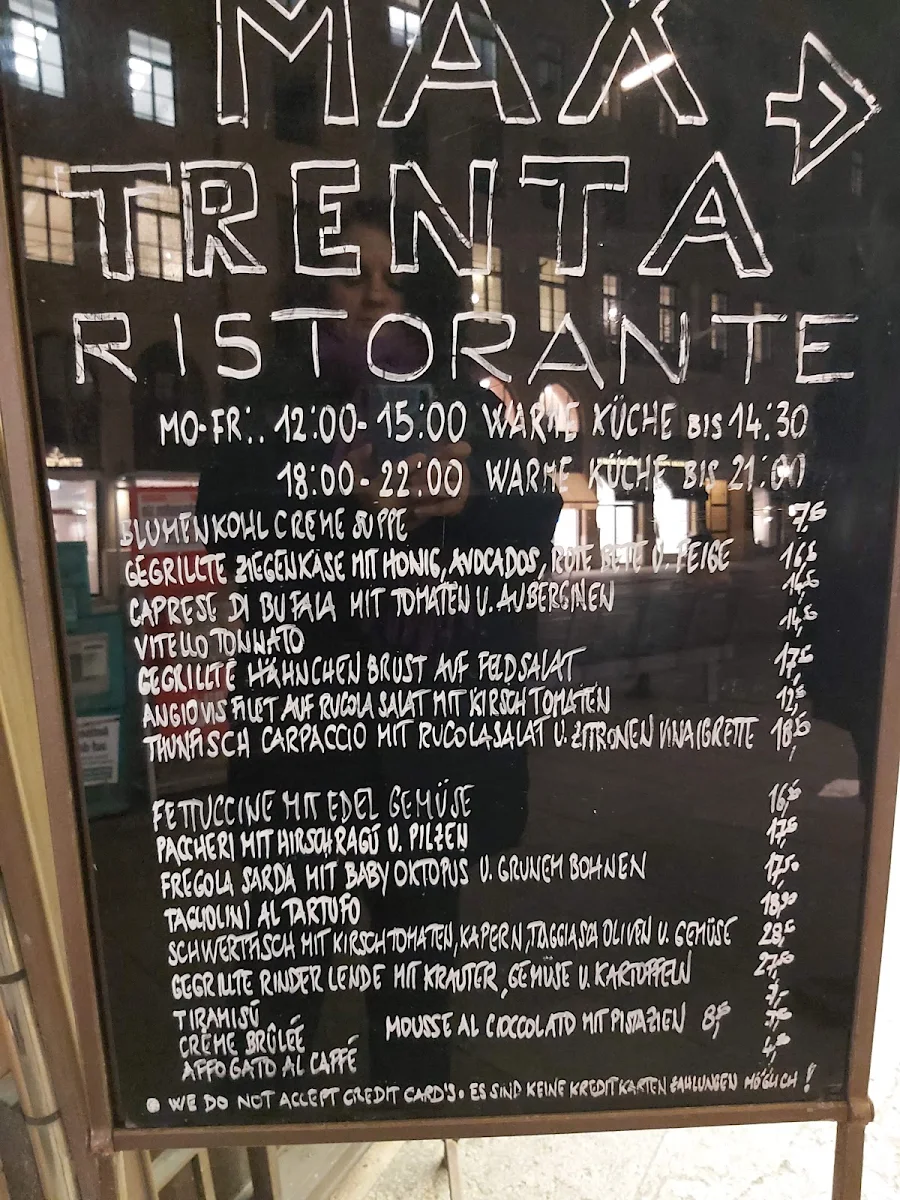 MAX
TRENTA
RISTORANTE
MO-FR.: 12:00-15:00 WARME KÜCHE BIS 14:30
18:00-22:00 WARME KÜCHE BIS 21:00
BLUMENKOHL CREME SUPPE
GEGRILLTE ZIEGENKÄSE MIT HONIG, AVOCADOS, ROTE BETE U. FEIGE
CAPRESE DI BUFALA MIT TOMATEN U. AUBERGINEN
VITELLO TONNATO
GEGRILLTE HÄHNCHEN BRUST AUF FELDSALAT
ANGIOVIS FILET AUF RUCOLA SALAT MIT KIRSCH TOMATEN
THUNFISCH CARPACCIO MIT RUCOLASALAT U. ZITRONEN VINAIGRETTE
FETTUCCINE MIT EDEL GEMÜSE
PACCHERI MIT HIRSCHRAGÚ U. PILZEN
FREGOLA SARDA MIT BABY OKTOPUS U. GRUNEM BOHNEN
TAGLIOLINI AL TARTUFO
SCHWERTFISCH MIT KIRSCHTOMATEN, KAPERN, TAGGIASCA OLIVEN U. GEMÜSE
GEGRILLTE RINDER LENDE MIT KRAUTER, GEMÜSE U. KARTOFFELN
TIRAMISÚ
CRÈME BRÛLÉE MOUSSE AL CIOCCOLATO MIT PISTAZIEN
AFFOGATO AL CAFFÉ
WE DO NOT ACCEPT CREDIT CARD'S. ES SIND KEINE KREDITKARTEN ZAHLUNGEN MÖGLICH!